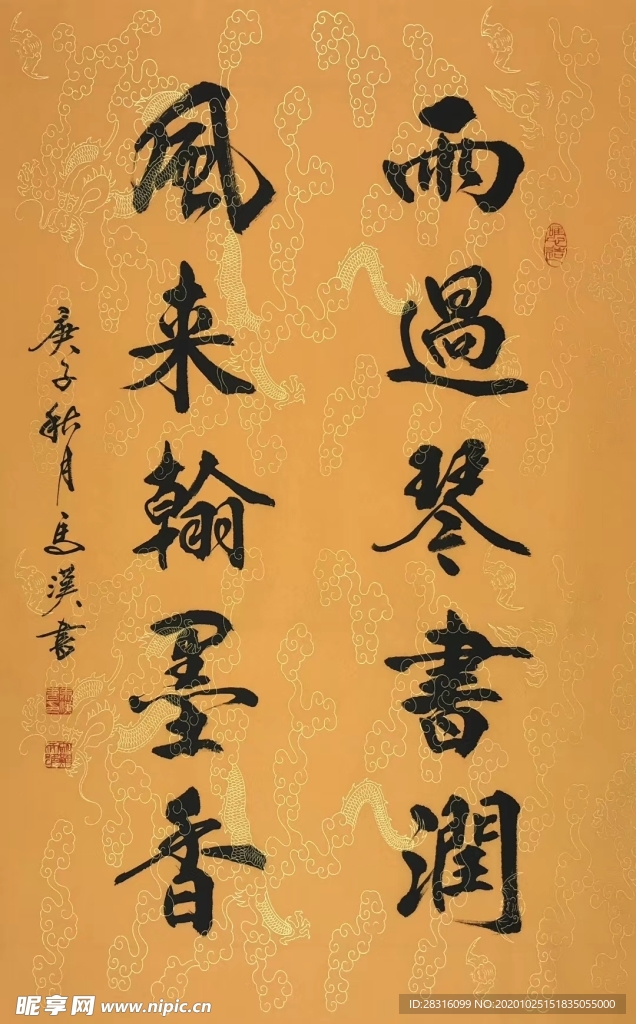 雨過琴書潤
風来翰墨香
庚子秋月馬漢書
昵享网 www.nipic.cn
ID:28316099 NO:20201025151835055000